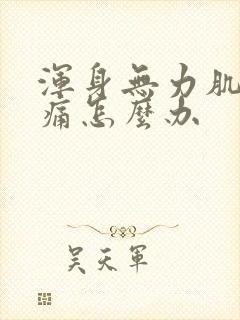 渾身無力肌
痛怎麼办
吴天軍